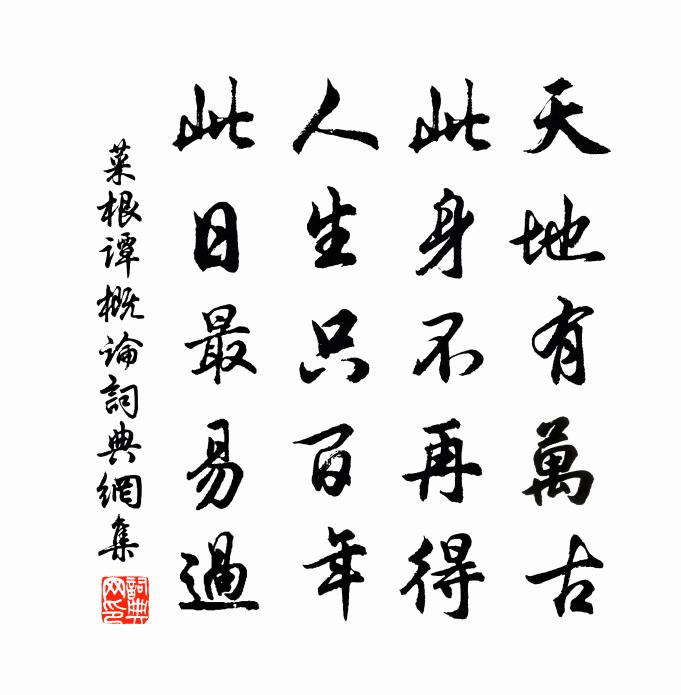 天地有萬古
此身不再得
人生只百年
此日最易過
菜根谭概論詞典網集
詞典網印